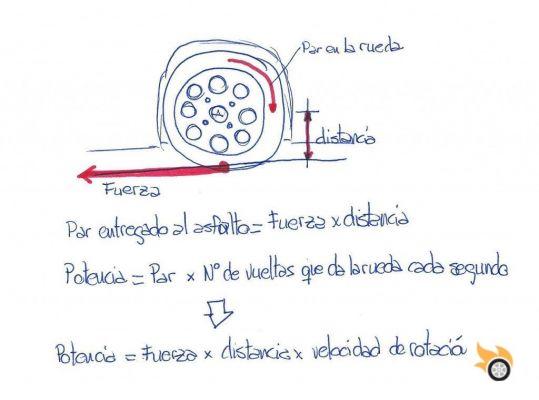 Par en la rueda
distancia
Fuerza
Par entregado al asfalto = Fuerza x distancia
Potencia = Par x Nº de vueltas que da la rueda cada segundo
Potencia = Fuerza x distancia x velocidad de rotació